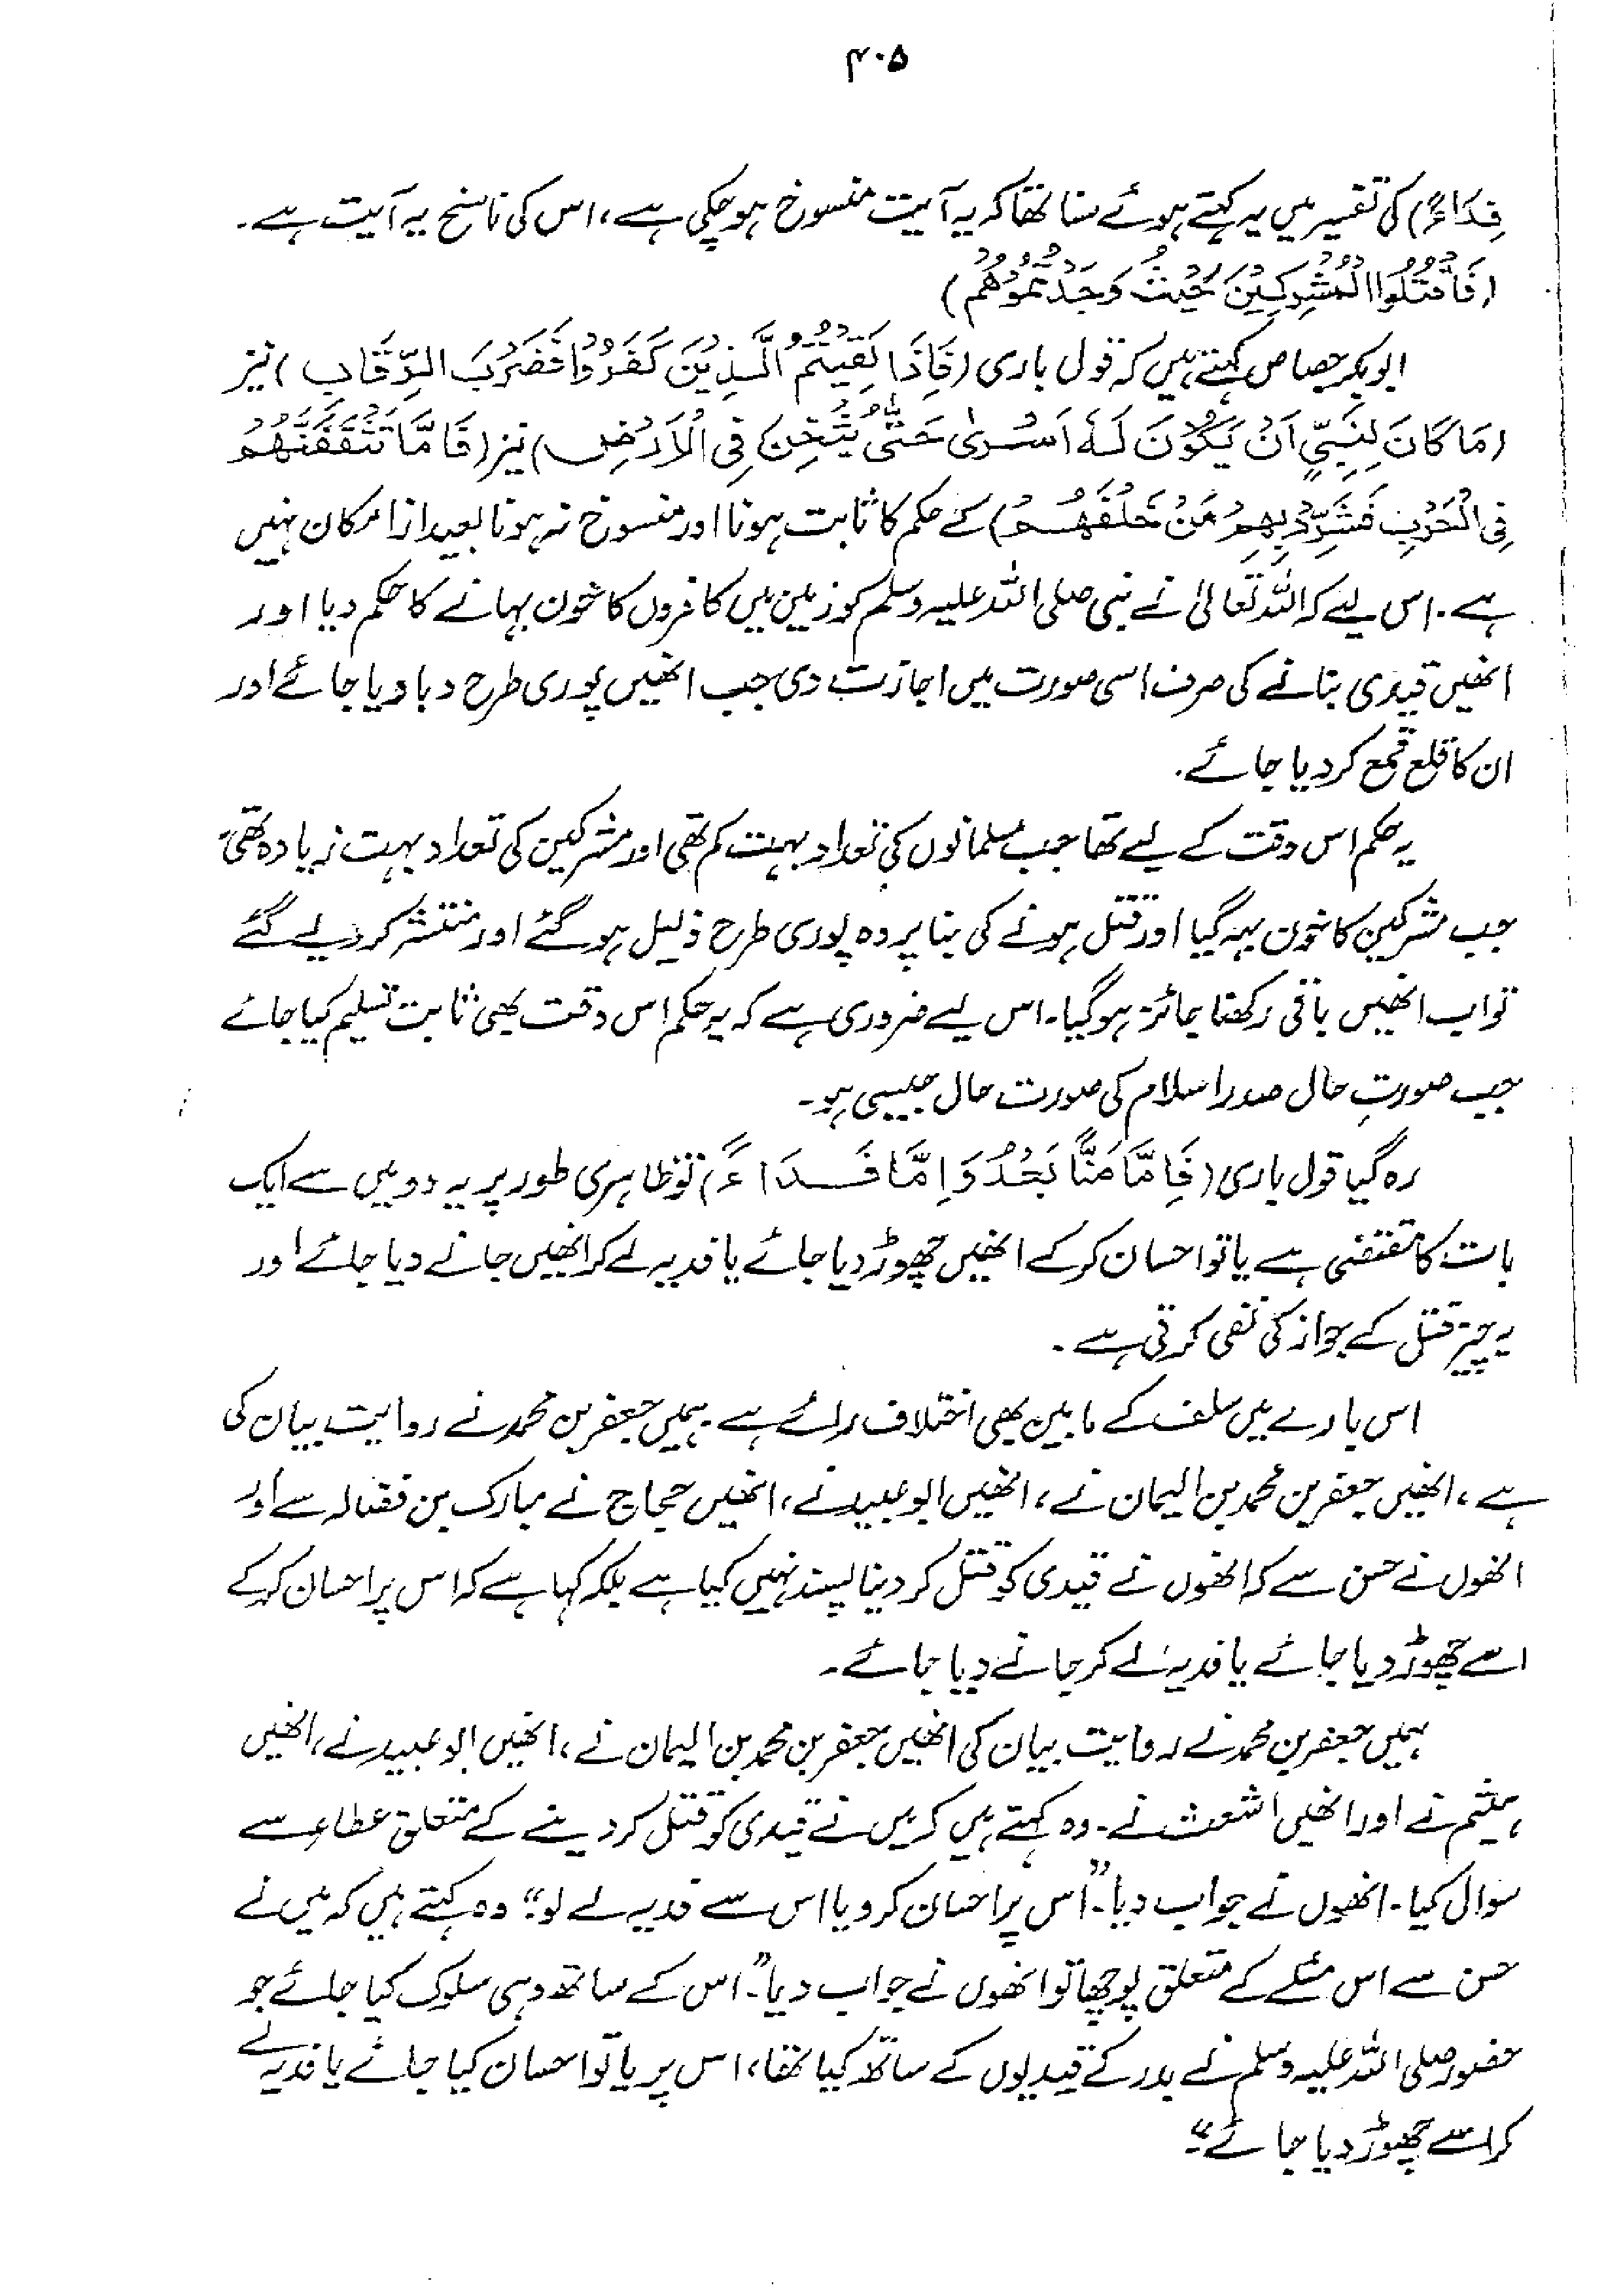 ۴۰۵
فِدَاءً) کی تفسیر میں یہ کہتے ہوئے سنا تھا کہ یہ آیت منسوخ ہو چکی ہے، اس کی ناسخ یہ آیت ہے۔
(فَاقْتُلُوا الْمُشْرِكِيْنَ حَيْثُ وَجَدْتُّمُوْهُمْ)
ابوبکر جصاص کہتے ہیں کہ قول باری (فَاِذَا لَقِيْتُمُ الَّذِيْنَ كَفَرُوْا فَضَرْبَ الرِّقَابِ) نیز
(مَا كَانَ لِنَبِيٍّ اَنْ يَّكُوْنَ لَهٗ اَسْرٰى حَتّٰى يُثْخِنَ فِى الْاَرْضِ) نیز (فَاِمَّا تَثْقَفَنَّهُمْ
فِى الْحَرْبِ فَشَرِّدْ بِهِمْ مَّنْ خَلْفَهُمْ) کے حکم کا ثابت ہونا اور منسوخ نہ ہونا بعید از امکان نہیں
ہے۔ اس لیے کہ اللہ تعالیٰ نے نبی صلی اللہ علیہ وسلم کو زمین میں کافروں کا خون بہانے کا حکم دیا اور
انھیں قیدی بنانے کی صرف اسی صورت میں اجازت دی جب انھیں پوری طرح دبا دیا جائے اور
ان کا قلع قمع کر دیا جائے۔
یہ حکم اس وقت کے لیے تھا جب مسلمانوں کی تعداد بہت کم تھی اور مشرکین کی تعداد بہت زیادہ تھی۔
جب مشرکین کا خون بہہ گیا اور قتل ہونے کی بنا پر وہ پوری طرح ذلیل ہو گئے اور منتشر کر دیے گئے
تو اب انھیں باقی رکھنا جائز ہو گیا۔ اس لیے ضروری ہے کہ یہ حکم اس وقت بھی ثابت تسلیم کیا جائے
جب صورتِ حال صدر اسلام کی صورت حال جیسی ہو۔
رہ گیا قول باری (فَاِمَّا مَنًّا بَعْدُ وَاِمَّا فِدَاءً) تو ظاہری طور پر یہ دو میں سے ایک
بات کا مقتضی ہے یا تو احسان کر کے انھیں چھوڑ دیا جائے یا فدیہ لے کر انھیں جانے دیا جائے اور
یہ چیز قتل کے جواز کی نفی کرتی ہے۔
اس بارے میں سلف کے مابین بھی اختلاف رائے ہے۔ ہمیں جعفر بن محمد نے روایت بیان کی
ہے، انھیں جعفر بن محمد بن الیمان نے، انھیں ابو عبید نے، انھیں حجاج نے مبارک بن فضالہ سے اور
انھوں نے حسن سے کہ انھوں نے قیدی کو قتل کر دینا پسند نہیں کیا ہے بلکہ کہا ہے کہ اس پر احسان کر کے
اسے چھوڑ دیا جائے یا فدیہ لے کر جانے دیا جائے۔
ہمیں جعفر بن محمد نے روایت بیان کی انھیں جعفر بن محمد بن الیمان نے، انھیں ابو عبید نے، انھیں
ہشیم نے اور انھیں اشعث نے۔ وہ کہتے ہیں کہ میں نے قیدی کو قتل کر دینے کے متعلق عطاء سے
سوال کیا۔ انھوں نے جواب دیا۔ "اس پر احسان کرو یا اس سے فدیہ لے لو" وہ کہتے ہیں کہ میں نے
حسن سے اس مسئلے کے متعلق پوچھا تو انھوں نے جواب دیا۔ "اس کے ساتھ وہی سلوک کیا جائے جو
حضور صلی اللہ علیہ وسلم نے بدر کے قیدیوں کے ساتھ کیا تھا، اس پر یا تو احسان کیا جائے یا فدیہ لے
کر اسے چھوڑ دیا جائے"۔